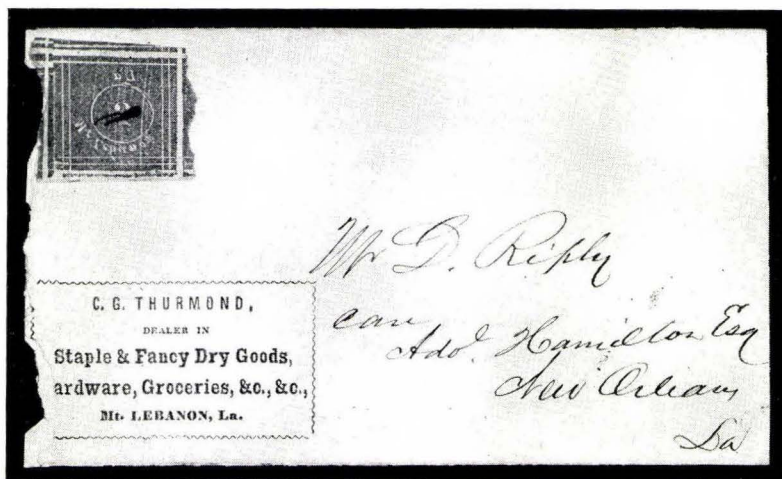 C. G. THURMOND,
DEALER IN
Staple & Fancy Dry Goods,
ardware, Groceries, &c., &c.,
Mt. LEBANON, La.
Mr D. Riply
care
Ado. Hamilton Esq
New Orleans
La